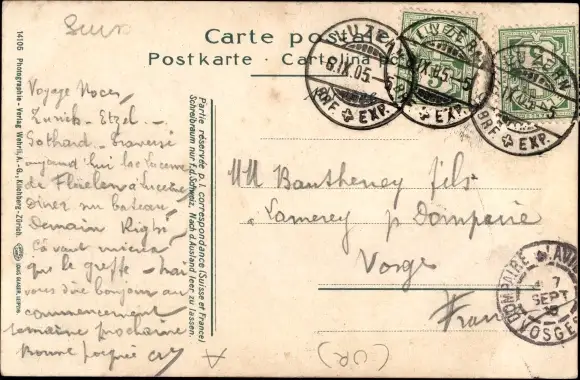 14106 Photographie-Verlag Wehrli, A.-G., Kilchberg-Zürich.
Carte postale
Postkarte - Cartolina
LUZERN
6.IX.05.-5
BRF. EXP.
LUZERN
IX.05.-5
BRF. EXP.
LUZERN
IX.05.-5
BRF. EXP.
Partie réservée p. l. correspondance (Suisse et France)
Schreibraum nur f. d. Schweiz. Nach d. Ausland leer zu lassen.
Voyage Noces
Zurich - Etzel -
Gothard - Traversé
aujourd'hui lac Lucerne
de Flüelen à Lucerne
Diner sur bateau
Demain Righi
Ça vaut mieux
que le greffe -
vous dire bonjour au
commencement
semaine prochaine
Bonne
MM Bautheney fils
Lamerey p Dompaire
Vosges
France
DOMPAIRE LAVIÉVILLE
7
SEPT
VOSGES
(UR)
A